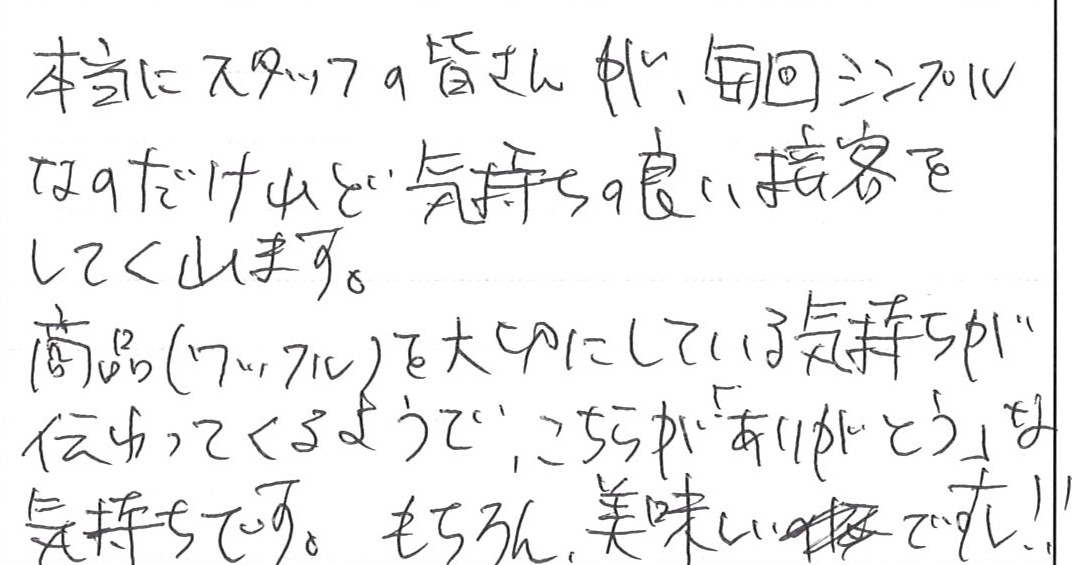 本当にスタッフの皆さんが、毎回シンプル
なのだけれど気持ちの良い接客を
してくれます。
商品(ワッフル)を大切にしている気持ちが
伝わってくるようで、こちらが「ありがとう」な
気持ちです。もちろん、美味しいですし!!